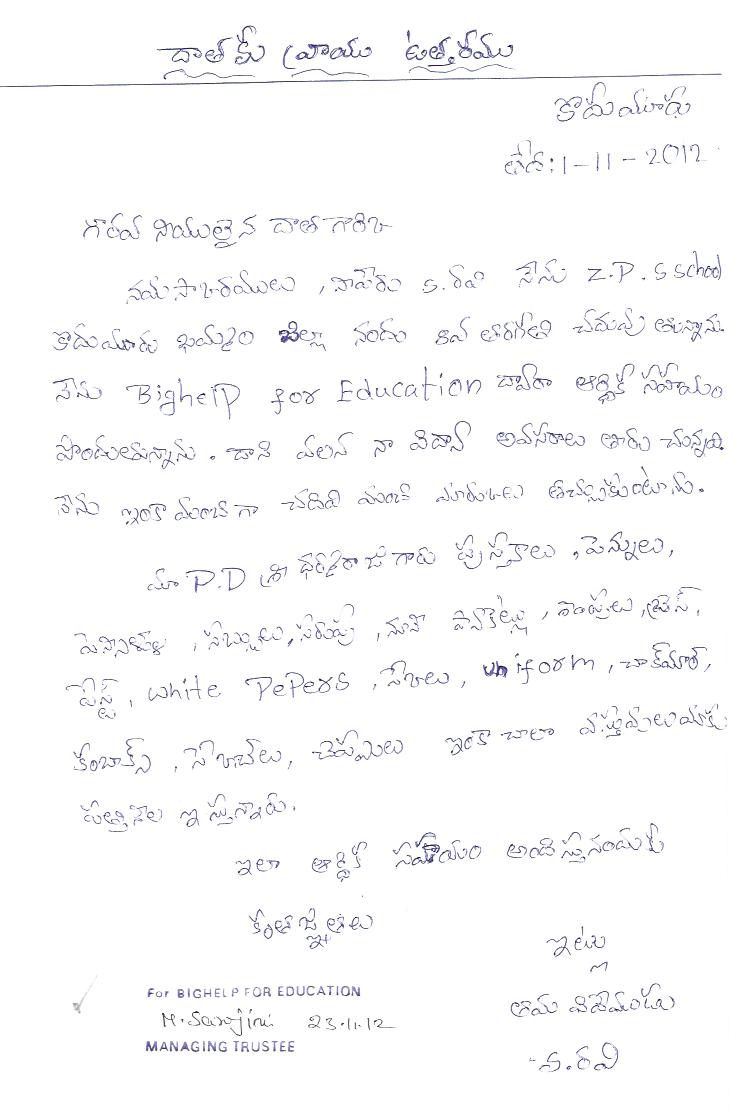 దాతకు వ్రాయు ఉత్తరము
కొదుమూరు
తేది: 1-11-2012
గౌరవ నియులైన దాత గారికి
నమస్కారములు, నాపేరు S. రవి నేను Z.P.S School
కొదుమూరు ఖమ్మం జిల్లా నందు 8వ తరగతి చదువు తున్నాను.
నేను Bighelp for Education ద్వారా ఆర్థిక సహాయం
పొందుతున్నాను. దాని వలన నా విద్యా అవసరాలు తీరు చున్నవి.
నేను ఇంకా మంచి గా చదివి మంచి మారుకులు తెచ్చుకుంటాను.
మా P.D శ్రీ ధర్మరాజు గారు పుస్తకాలు, పెన్నులు,
పెన్సిళ్లు, సబ్బులు, సరుపు, నూనె ప్యాకెట్లు, శాంపులు, బ్రెస్,
పేస్ట్, white PePers, uniform,
కంబాక్స్, చెప్పులు ఇంకా చాలా వస్తువులు మాకు
ప్రతినెల ఇస్తున్నారు.
ఇలా ఆర్థిక సహాయం అందిస్తునందుకు
కృతజ్ఞతలు
ఇట్లు
తమ విదేయుడు
స. రవి
For BIGHELP FOR EDUCATION
M. Sarojini 23.11.12
MANAGING TRUSTEE